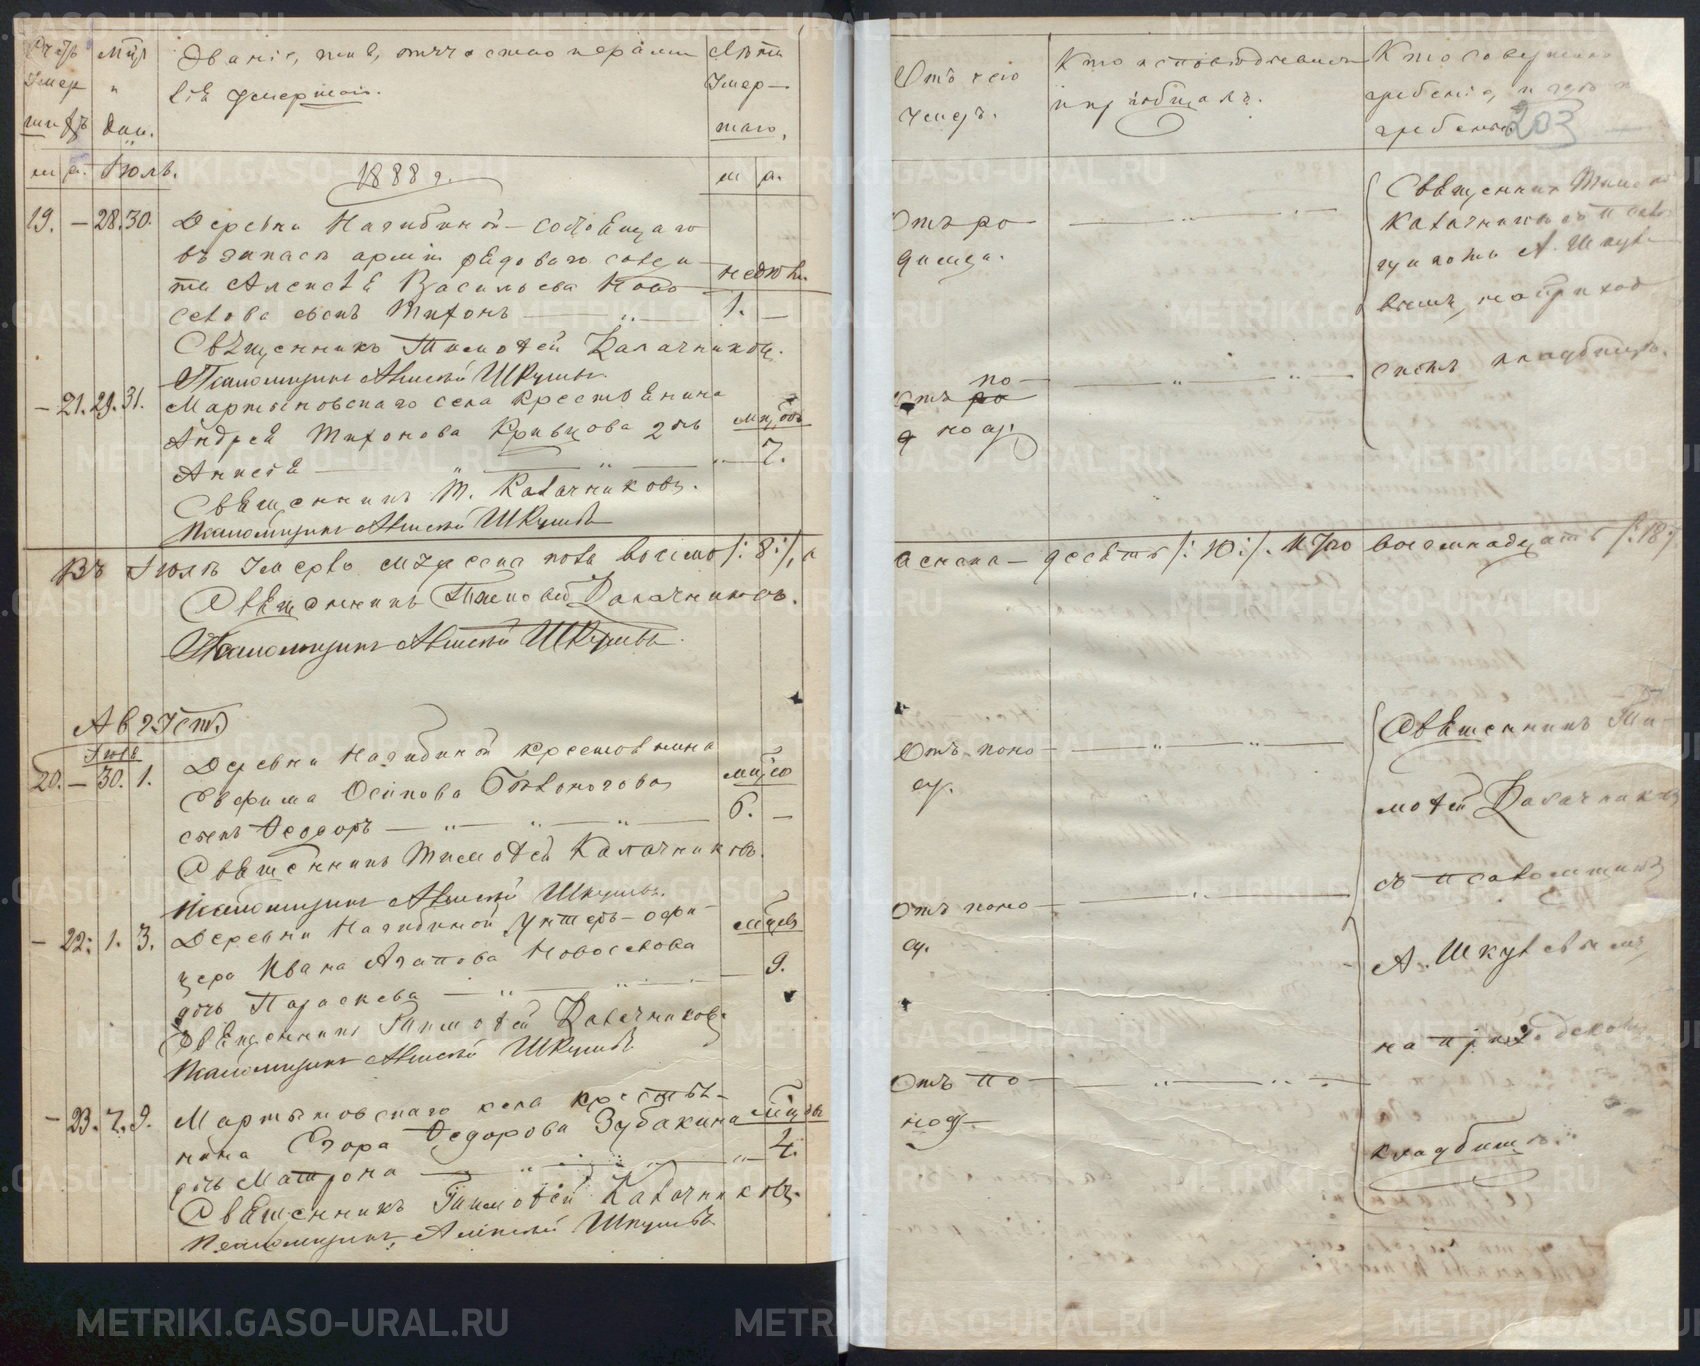 Счетъ Мѣс. Званіе, имя, отчество и фамилія умершаго. Лѣта умершаго.
и дни.
м. ж. Іюль. 1888 г. м. ж.
19. – 28. 30. Деревни Нагибиной – состоящаго
въ запасѣ арміи рядоваго
Алексѣя Васильева Ново- недѣль
селова сынъ Тихонъ 1. –
Священникъ Тимоѳей Калачниковъ.
Псаломщикъ Алексѣй Шкулевъ
– 21. 29. 31. Мартыновскаго села крестьянина
Андрея Тихонова Кривцова дочь
Анисія 7.
Священникъ Т. Калачниковъ.
Псаломщикъ Алексѣй Шкулевъ
Въ Іюлѣ умерло мужеска пола восемь /: 8 :/, а
Священникъ Тимоѳей Калачниковъ.
Псаломщикъ Алексѣй Шкулевъ.
Августъ
Іюль
20. – 30. 1. Деревни Нагибиной крестьянина
Евфима Осипова Бѣлоногова
сынъ Ѳеодоръ 6. –
Священникъ Тимоѳей Калачниковъ.
Псаломщикъ Алексѣй Шкулевъ.
– 22. 1. 3. Деревни Нагибиной унтеръ-офи-
цера Ивана Агапова Новоселова
дочь Параскева 9.
Священникъ Тимоѳей Калачниковъ
Псаломщикъ Алексѣй Шкулевъ
– 23. 7. 9. Мартыновскаго села крестья-
нина Егора Ѳедорова Зубакина
дочь Матрона 4.
Священникъ Тимоѳей Калачниковъ.
Псаломщикъ Алексѣй Шкулевъ
Отъ чего Кто исповѣдывалъ Кто совершалъ
умеръ. и пріобщалъ. гребеніе, и гдѣ
203
Отъ ро-
димца.
Священникъ Тимоѳ
Калачниковъ съ псалом
щикомъ А. Шкуле-
вымъ, на приход
скомъ кладбищѣ.
Отъ по-
носу.
женска – десять /: 10 :/. Итого восемнадцать /: 18 :/
Отъ поно-
су.
Отъ поно-
су.
Отъ по-
носу.
Священникъ Ти-
моѳей Калачников
съ псаломщикомъ
А. Шкулевымъ
на приходском
кладбищѣ.
METRIKI.GASO-URAL.RU